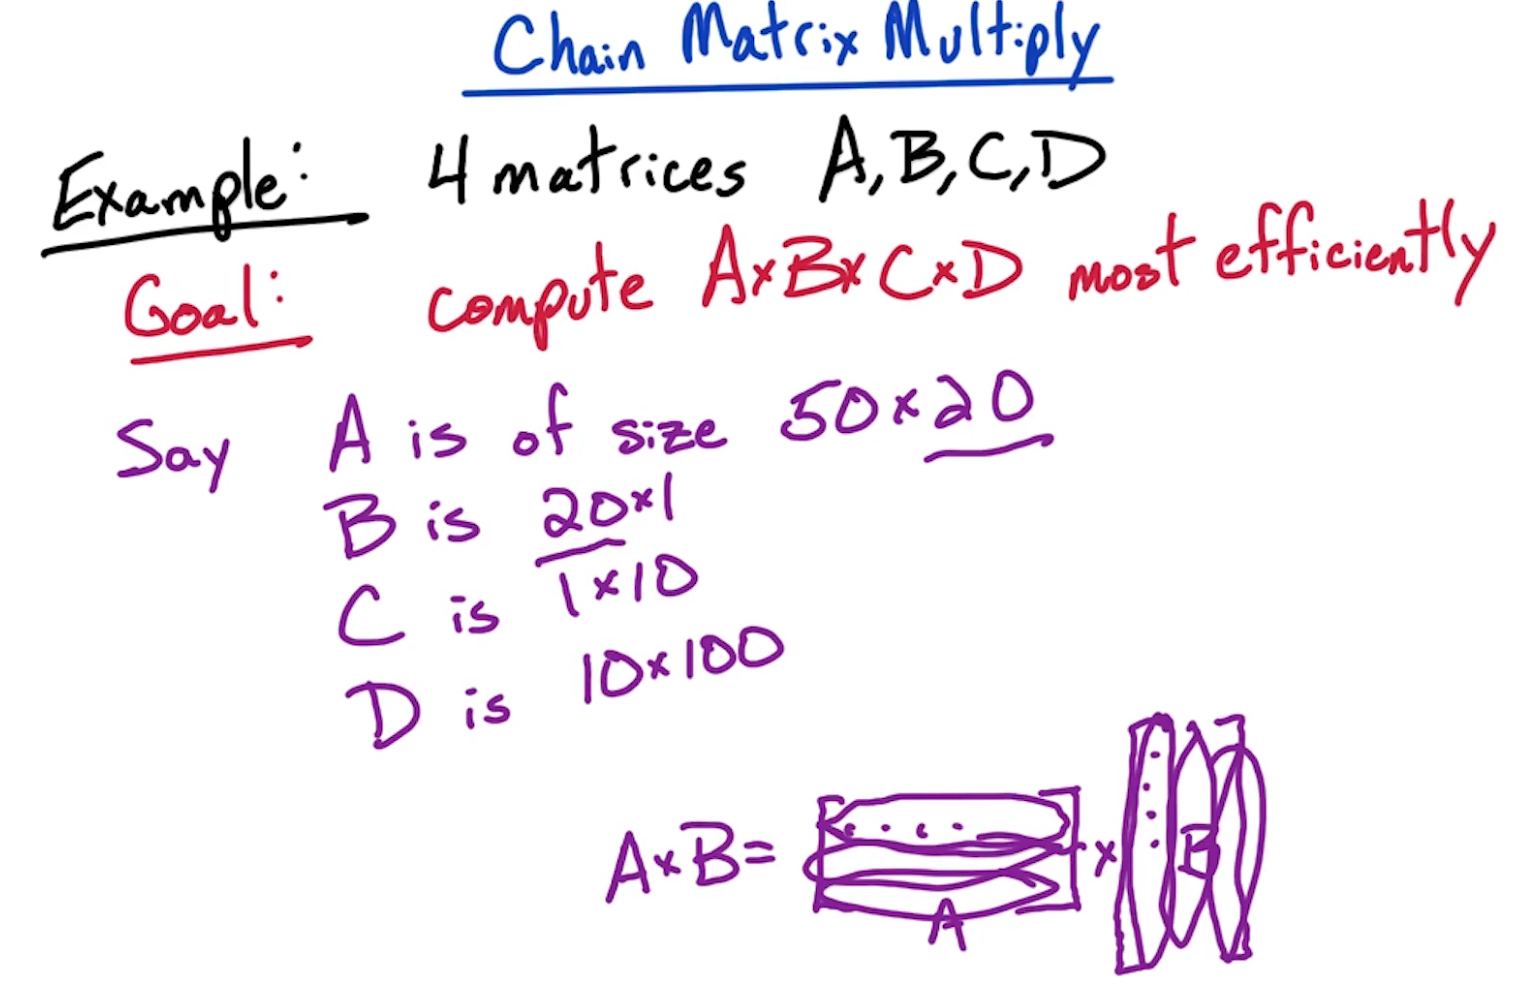 Chain Matrix Multiply
Example: 4 matrices A, B, C, D
Goal: compute A×B×C×D most efficiently
Say A is of size 50×20
B is 20×1
C is 1×10
D is 10×100
A×B= × B
A